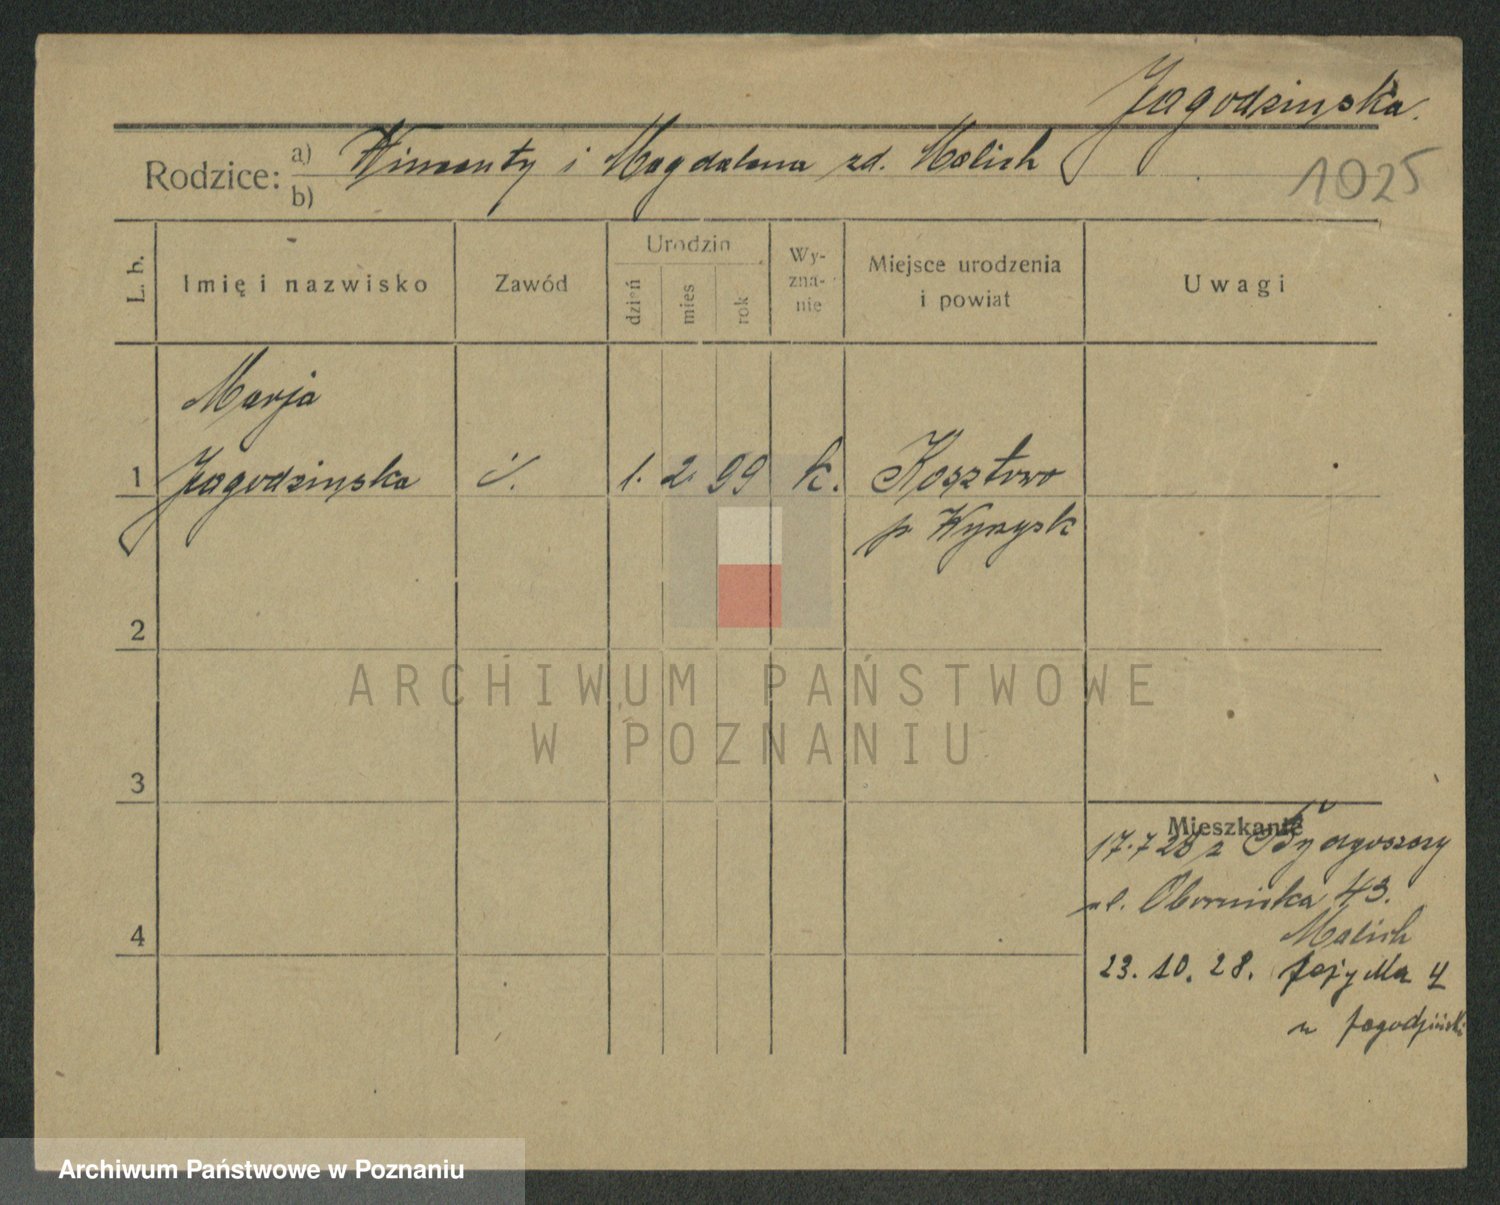 Jagodzinska.
Rodzice: a) Wincenty i Magdalena zd. Malich
b)
1025
L. b.
Imię i nazwisko
Zawód
Urodzin
dzień
mies
rok
Wy-
zna-
nie
Miejsce urodzenia
i powiat
Uwagi
Marja
1 Jagodzinska
1. 2. 99 k. Kosztowo
p Wyrzysk
2
ARCHIWUM PAŃSTWOWE
W POZNANIU
3
Mieszkanie
17.7 28 z Bydgoszczy
ul. Obornicka 43.
Malich
4
23. 10. 28.
u Jagodziński
Archiwum Państwowe w Poznaniu